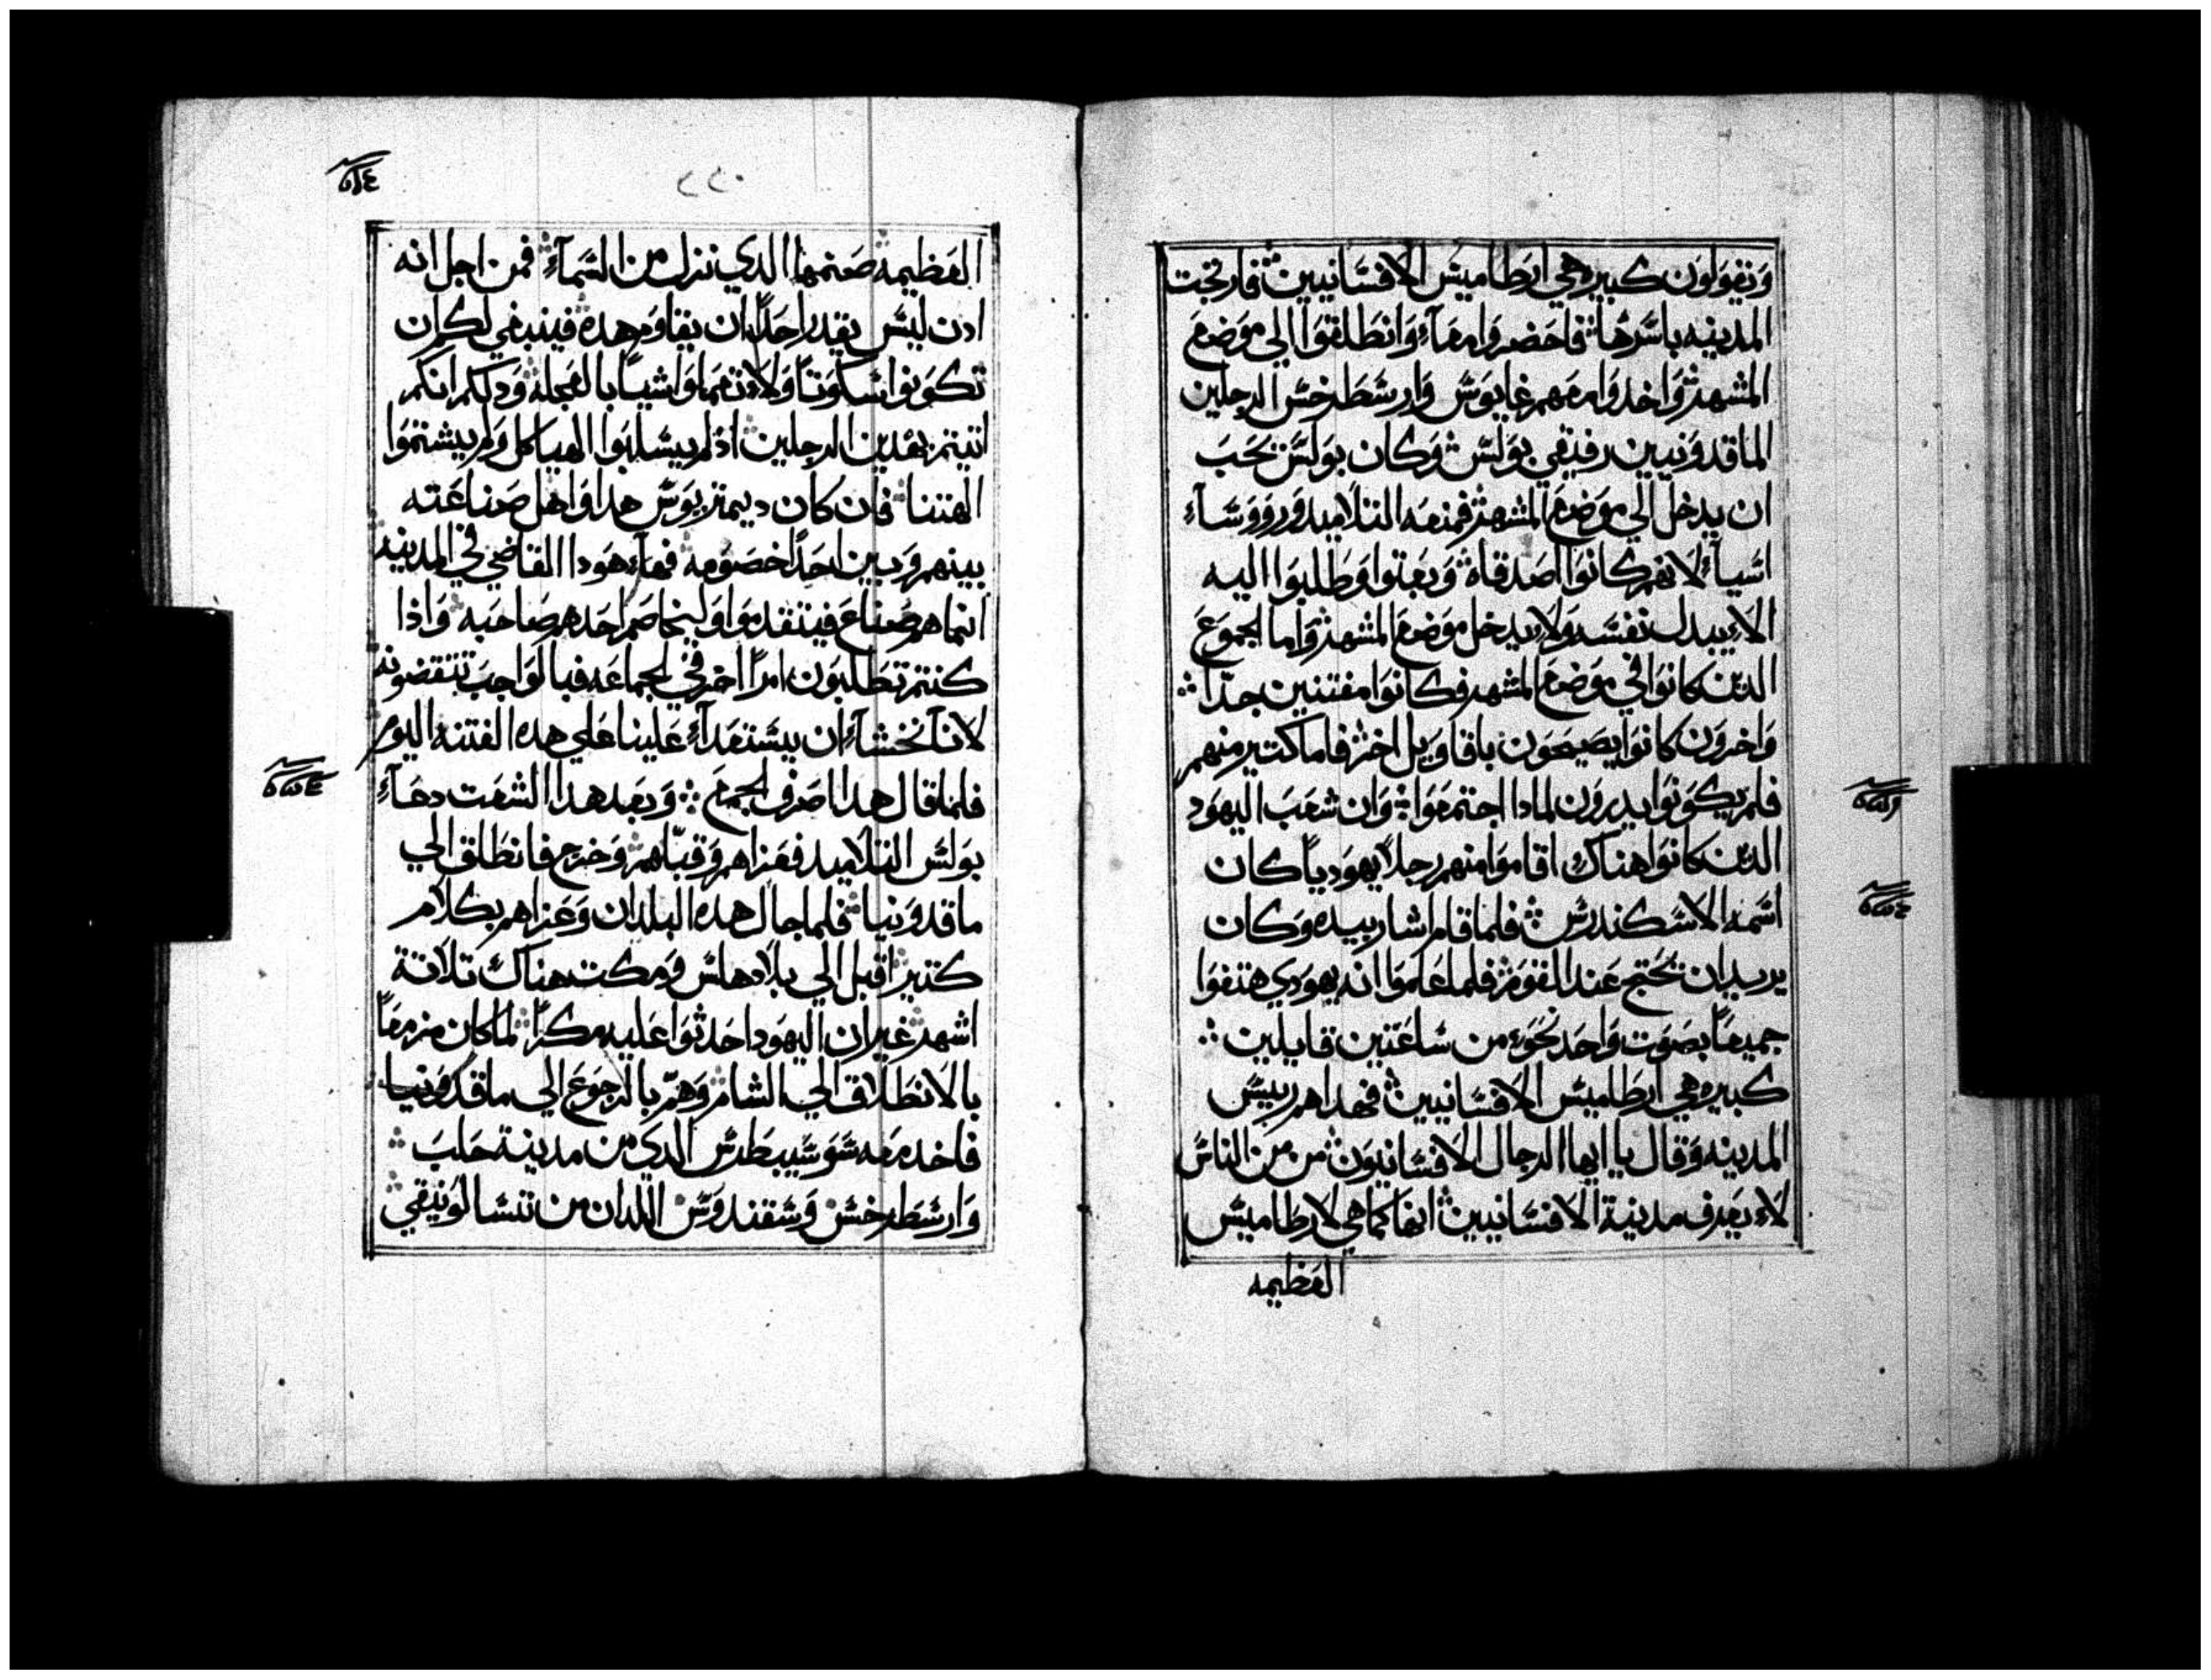 ويقولون كبيره هي ارطاميس الافسانيين فارتجت
المدينه باسرها فاحضروا معآء وانطلقوا الي موضع
المشهد واخدوا معهم غايوس وارسطرخس الرجلين
الماقدونيين رفيقي بولس وكان بولس يحب
ان يدخل الي موضع المشهد فمنعه التلاميد وروووسآء
اسيآء لانهم كانوا اصدقاه وبعتوا وطلبوا اليه
الاء يبدل نفسه ولاء يدخل موضع المشهد واما الجموع
الدين كانوا في موضع المشهد فكانوا مفتنين جدا
واخرون كانوا يصيحون باقاويل اخر فاما كتير منهم
فلم يكونوا يدرون لمادا اجتمعوا وان شعب اليهود
الدين كانوا هناك اقاموا منهم رجلا يهوديا كان
اسمه الاسكندرس فلما قام اشار بيده وكان
يريد ان يحتج عند القوم فلما علموا انه يهودي هتفوا
جميعا بصوت واحد نحوء من ساعتين قايلين
كبيره هي ارطاميس الافسانيين فهداهم رييس
المدينه وقال يا ايها الرجال الافسانيون من من الناس
لاء يعرف مدينة الافسانيين انها كما هي لارطاميس
العظيمه
٢٢٠
العظيمه صنمها الدي نزل من السمآء فمن اجل انه
ادن ليس يقدر احدا ان يقاوم هده فينبغي لكم ان
تكونوا سكوتا ولاء تعملوا شيا بالعجله ودلكم انكم
اتيتم بهدين الرجلين اذ لم يسلبوا الهياكل ولم يشتموا
الهتنا فان كان ديمتريوس هدا واهل صناعته
بينهم وبين احدا خصومه فهاء هودا القاضي في المدينه
انما هم صناع فيتقدموا وليخاصم احدهم صاحبه واذا
كنتم تطلبون امرا اخر ففي الجماعه فبالواجب تنقضونه
لانا نخشاء ان يستعدآء علينا علي هده الفتنه اليوم
فلما قال هدا صرف الجمع وبعد هدا الشغت دعآء
بولس التلاميد فعزاهم وقبلهم وخرج فانطلق الي
ماقدونيا فلما جال هده البلدان وعزاهم بكلام
كتير اقبل الي بلاد هلس ومكت هناك تلاتة
اشهد غير ان اليهود احدثوا عليه مكرا لما كان مزمعا
بالانطلاق الي الشام وهم بالرجوع الي ماقدونيا
فاخد معه سوسيبطرس الدي من مدينة حلب
وارسطرخس وسقندوس اللدان من تسالونيقي